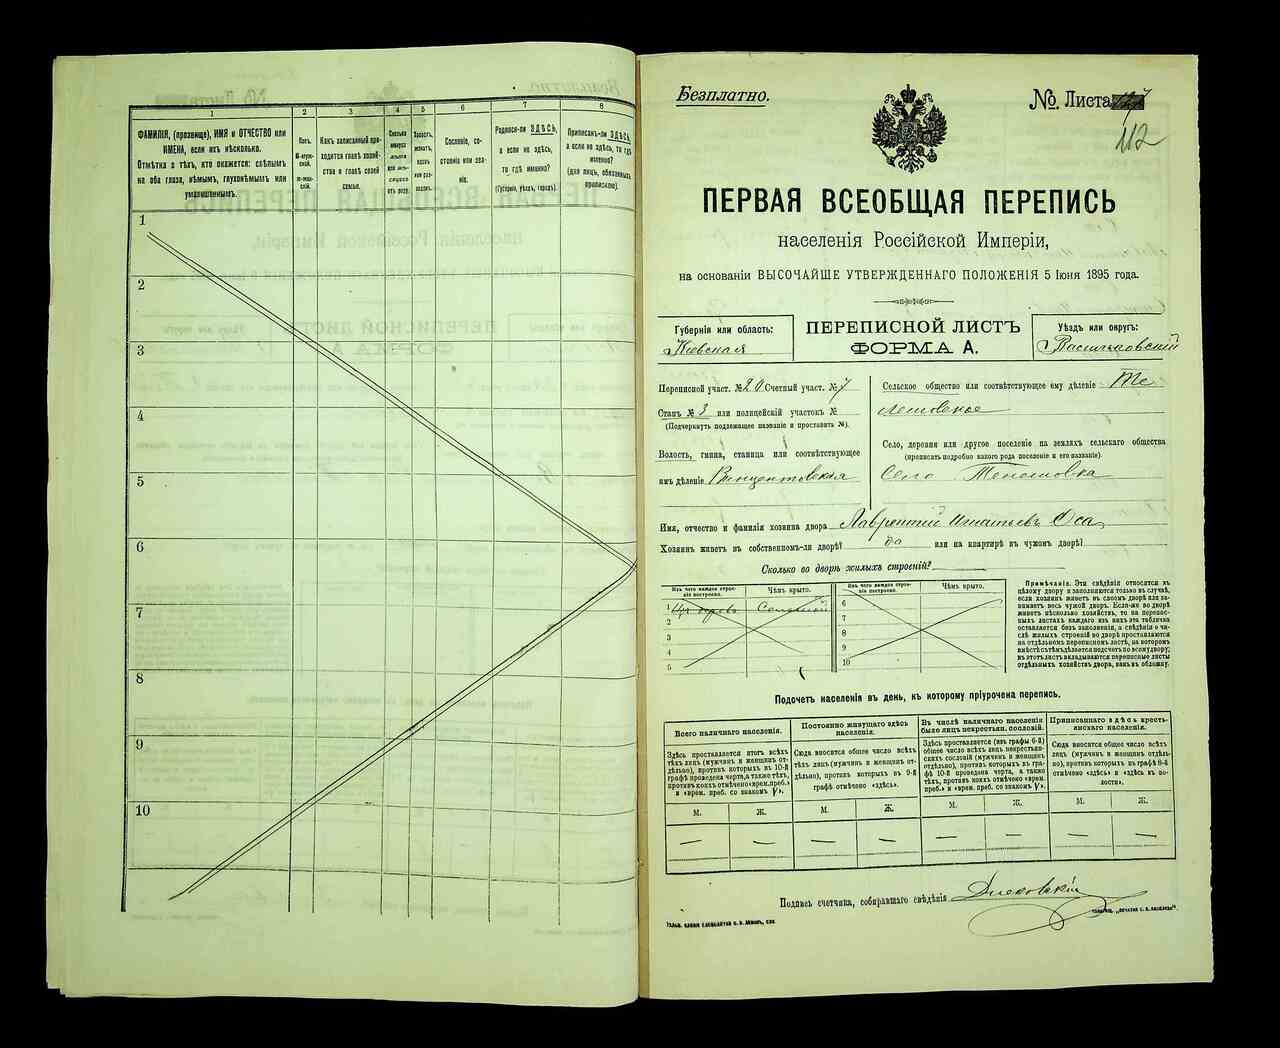 1
2
3
4
5
6
7
8
ФАМИЛІЯ, (прозвище), ИМЯ и ОТЧЕСТВО или
ИМЕНА, если ихъ нѣсколько.
Отмѣтка о тѣхъ, кто окажется: слѣпымъ
на оба глаза, нѣмымъ, глухонѣмымъ или
умалишеннымъ.
Полъ.
Какъ записанный при-
ходится главѣ хозяй-
ства и главѣ своей
семьи.
Сословіе, со-
стояніе или зва-
ніе.
Родился-ли ЗДѢСЬ,
а если не здѣсь,
то гдѣ именно?
(Губернія, уѣздъ, городъ).
Приписанъ-ли ЗДѢСЬ,
а если не здѣсь, то гдѣ
именно?
(для лицъ, обязанныхъ
припискою).
1
2
3
4
5
6
7
8
9
10
Безплатно.
№ Листа
112
ПЕРВАЯ ВСЕОБЩАЯ ПЕРЕПИСЬ
населенія Россійской Имперіи,
на основаніи ВЫСОЧАЙШЕ УТВЕРЖДЕННАГО ПОЛОЖЕНІЯ 5 Іюня 1895 года.
Губернія или область:
Кіевская
ПЕРЕПИСНОЙ ЛИСТЪ
ФОРМА А.
Уѣздъ или округъ:
Васильковскій
Переписной участ. № 20 Счетный участ. № 7
Станъ № 3 или полицейскій участокъ №
(Подчеркнуть подлежащее названіе и проставить №).
Волость, гмина, станица или соотвѣтствующее
имъ дѣленіе Винцентовская
Сельское общество или соотвѣтствующее ему дѣленіе
Село, деревня или другое поселеніе на земляхъ сельскаго общества
(прописать подробно какого рода поселеніе и его названіе).
Село
Имя, отчество и фамилія хозяина двора Лаврентій Игнатьевъ Оса
Хозяинъ живетъ въ собственномъ-ли дворѣ? да или на квартирѣ въ чужомъ дворѣ?
Сколько во дворѣ жилыхъ строеній?
Изъ чего каждое строе-
ніе построено.
Чѣмъ крыто.
Изъ чего каждое строе-
ніе построено.
Чѣмъ крыто.
1 Изъ дерев Соломой
2
3
4
5
6
7
8
9
10
Примѣчаніе. Эти свѣдѣнія относятся къ
цѣлому двору и заполняются только въ случаѣ,
если хозяинъ живетъ въ своемъ дворѣ или за-
нимаетъ весь чужой дворъ. Если-же во дворѣ
живетъ нѣсколько хозяйствъ, то на перепис-
ныхъ листахъ каждаго изъ нихъ эта табличка
оставляется безъ заполненія, а свѣдѣнія о чи-
слѣ жилыхъ строеній во дворѣ проставляются
на отдѣльномъ переписномъ листѣ, на которомъ
вмѣстѣ съ тѣмъ дѣлается подсчетъ по всему двору;
въ этотъ листъ вкладываются переписные листы
отдѣльныхъ хозяйствъ двора, какъ въ обложку.
Подсчетъ населенія въ день, къ которому пріурочена перепись.
Всего наличнаго населенія.
Постоянно живущаго здѣсь
населенія.
Въ числѣ наличнаго населенія
было лицъ некрестьян. сословій.
Приписаннаго здѣсь кресть-
янскаго населенія.
Здѣсь проставляется итогъ всѣхъ
тѣхъ лицъ (мужчинъ и женщинъ от-
дѣльно), противъ которыхъ въ 10-й
графѣ проведена черта, а также тѣхъ,
противъ коихъ отмѣчено «врем. преб.»
и «врем. преб. со знакомъ V».
Сюда вносится общее число всѣхъ
тѣхъ лицъ (мужчинъ и женщинъ от-
дѣльно), противъ которыхъ въ 9-й
графѣ отмѣчено «здѣсь».
Здѣсь проставляется (изъ графы 6-й)
общее число всѣхъ лицъ некрестьян-
скихъ сословій (мужчинъ и женщинъ
отдѣльно), противъ которыхъ въ гра-
фѣ 10-й проведена черта, а также
тѣхъ, противъ коихъ отмѣчено «врем.
преб.» и «врем. преб. со знакомъ V».
Сюда вносится общее число всѣхъ
тѣхъ лицъ (мужчинъ и женщинъ отдѣль-
но), противъ которыхъ въ графѣ 8-й
отмѣчено «здѣсь» и «здѣсь въ во-
лости».
М. Ж. М. Ж. М. Ж. М. Ж.
— — — — — — — —
Подпись счетчика, собиравшаго свѣдѣнія